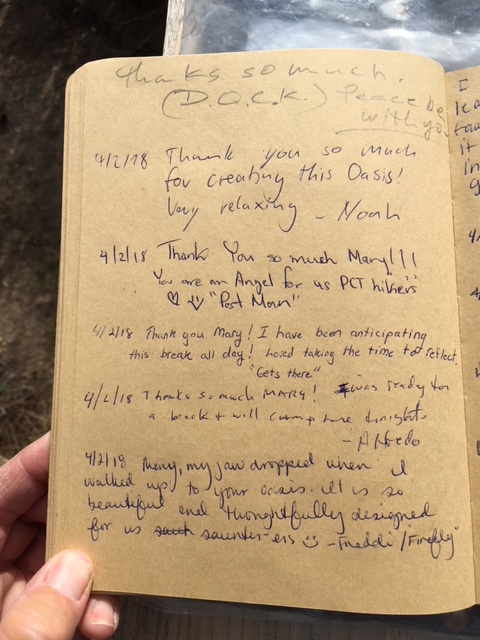 Thanks so much.
(D.O.C.K.) Peace be
with yo
4/2/18 Thank you so much
for creating this Oasis!
Very relaxing - Noah
4/2/18 Thank You so much Mary!!!
You are an Angel for us PCT hikers
"Post Man"
4/2/18 Thank you Mary! I have been anticipating
this break all day! loved taking the time to reflect.
"Gets there"
4/2/18 Thanks so much MARY! I was ready for
a break & will camp here tonight.
- Alfredo
4/2/18 Mary, my jaw dropped when I
walked up to your oasis. It is so
beautiful and thoughtfully designed
for us saunter-ers - Freddi / "Firefly"
I
it
in